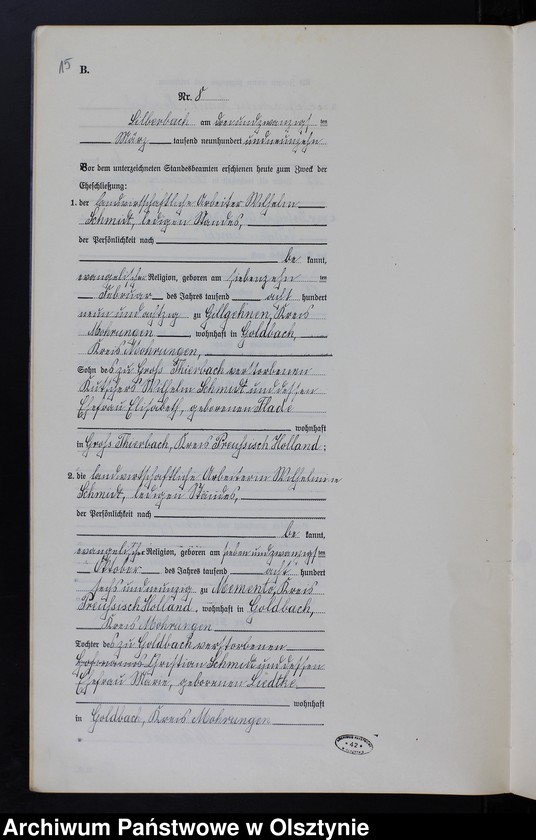 15 B.
Nr. 8
Silberbach am dreiundzwanzigsten
März tausend neunhundert undneunzehn
Vor dem unterzeichneten Standesbeamten erschienen heute zum Zweck der
Eheschließung:
1. der landwirtschaftliche Arbeiter Wilhelm
Schmidt, ledigen Standes,
der Persönlichkeit nach
be kannt,
evangelischer Religion, geboren am siebenzehn ten
Februar des Jahres tausend acht hundert
neun und achtzig zu Gillgehnen, Kreis
Mohrungen wohnhaft in Goldbach,
Kreis Mohrungen,
Sohn des zu Groß Thierbach verstorbenen
Kutschers Wilhelm Schmidt und dessen
Ehefrau Elisabeth, geborenen
wohnhaft
in Groß Thierbach, Kreis Preußisch Holland;
2. die landwirtschaftliche Arbeiterin Wilhelmine
Schmidt, ledigen Standes,
der Persönlichkeit nach
be kannt,
evangelischer Religion, geboren am siebenundzwanzigsten
Oktober des Jahres tausend acht hundert
sechs und neunzig zu Kreis
Preußisch Holland, wohnhaft in Goldbach,
Kreis Mohrungen
Tochter des zu Goldbach verstorbenen
Christian Schmidt und dessen
Ehefrau Marie, geborenen Liedtke
wohnhaft
in Goldbach, Kreis Mohrungen
* 42 *
Archiwum Państwowe w Olsztynie